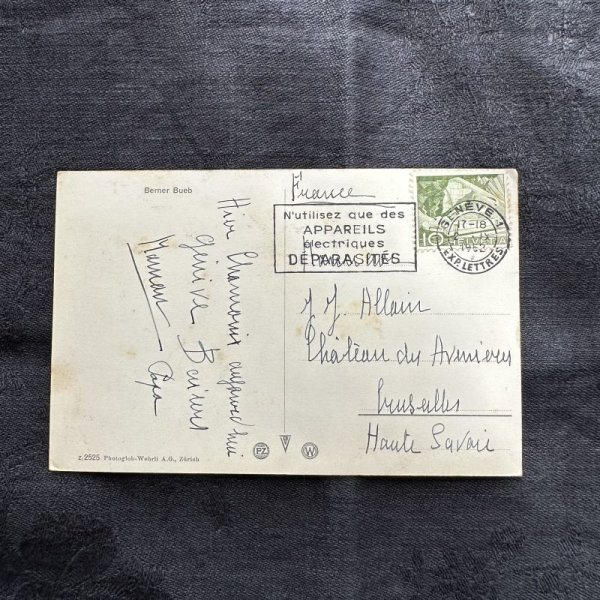 Berner Bueb
France
N'utilisez que des
APPAREILS
électriques
DÉPARASITÉS
GENÈVE 1
17-18
EXP. LETTRES
10
HELVETIA
Hier Chamonix aujourd'hui
Genève Baisers
Maman Papa
Allain
Château des Avenières
Cruseilles
Haute Savoie
z. 2525 Photoglob-Wehrli A.G., Zürich
PZ
W